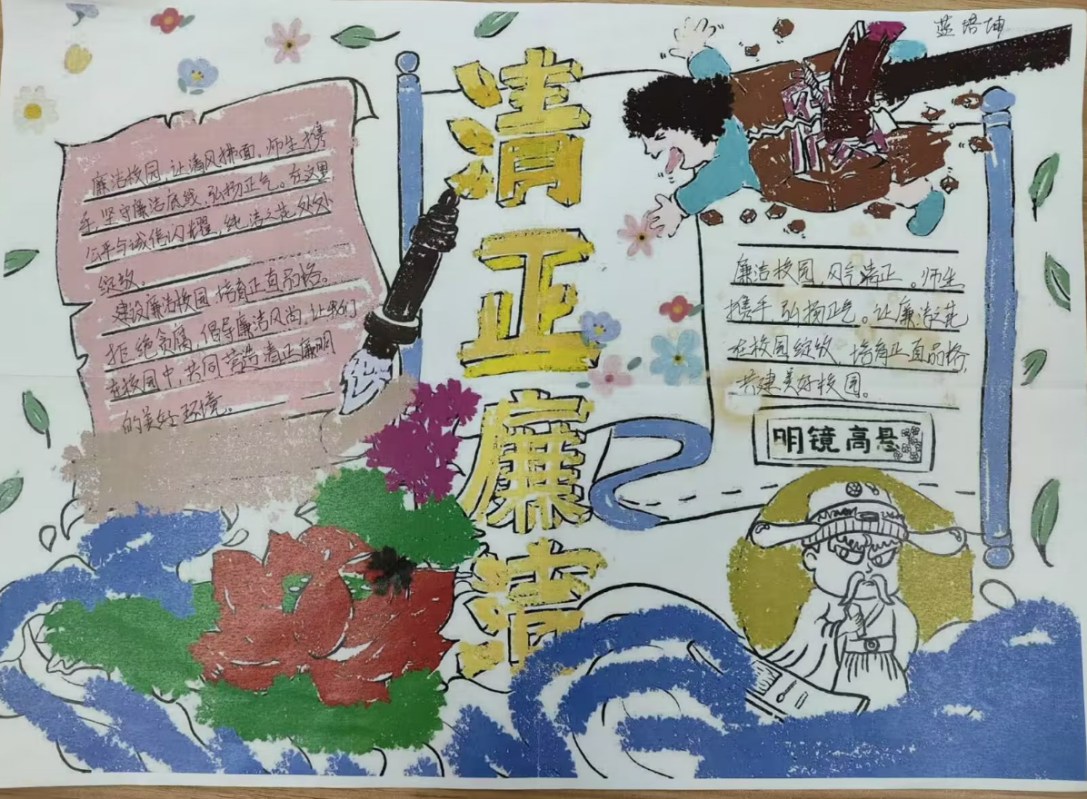 蓝培坤
清正廉清
廉洁校园，让清风拂面。师生携
手，坚守廉洁底线，弘扬正气。在这里
公平与诚信闪耀，纯洁之花处处
绽放。
建设廉洁校园，培育正直品格。
拒绝贪腐，倡导廉洁风尚，让我们
在校园中，共同营造清正廉明
的美好环境。
廉洁校园，风气清正。师生
携手，弘扬正气。让廉洁之花
在校园绽放，培育正直品格，
共建美好校园。
明镜高悬